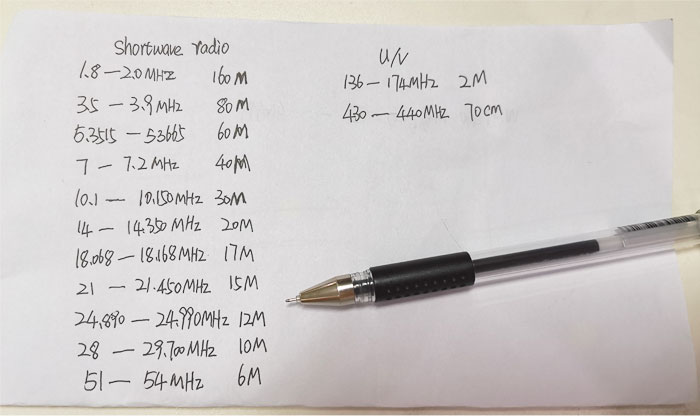 Shortwave radio
1.8 — 2.0MHz 160M
3.5 — 3.9MHz 80M
5.3515 — 5.3665 60M
7 — 7.2MHz 40M
10.1 — 10.150MHz 30M
14 — 14.350MHz 20M
18.068 — 18.168MHz 17M
21 — 21.450MHz 15M
24.890 — 24.990MHz 12M
28 — 29.700MHz 10M
51 — 54MHz 6M
U/V
136 — 174MHz 2M
430 — 440MHz 70cm